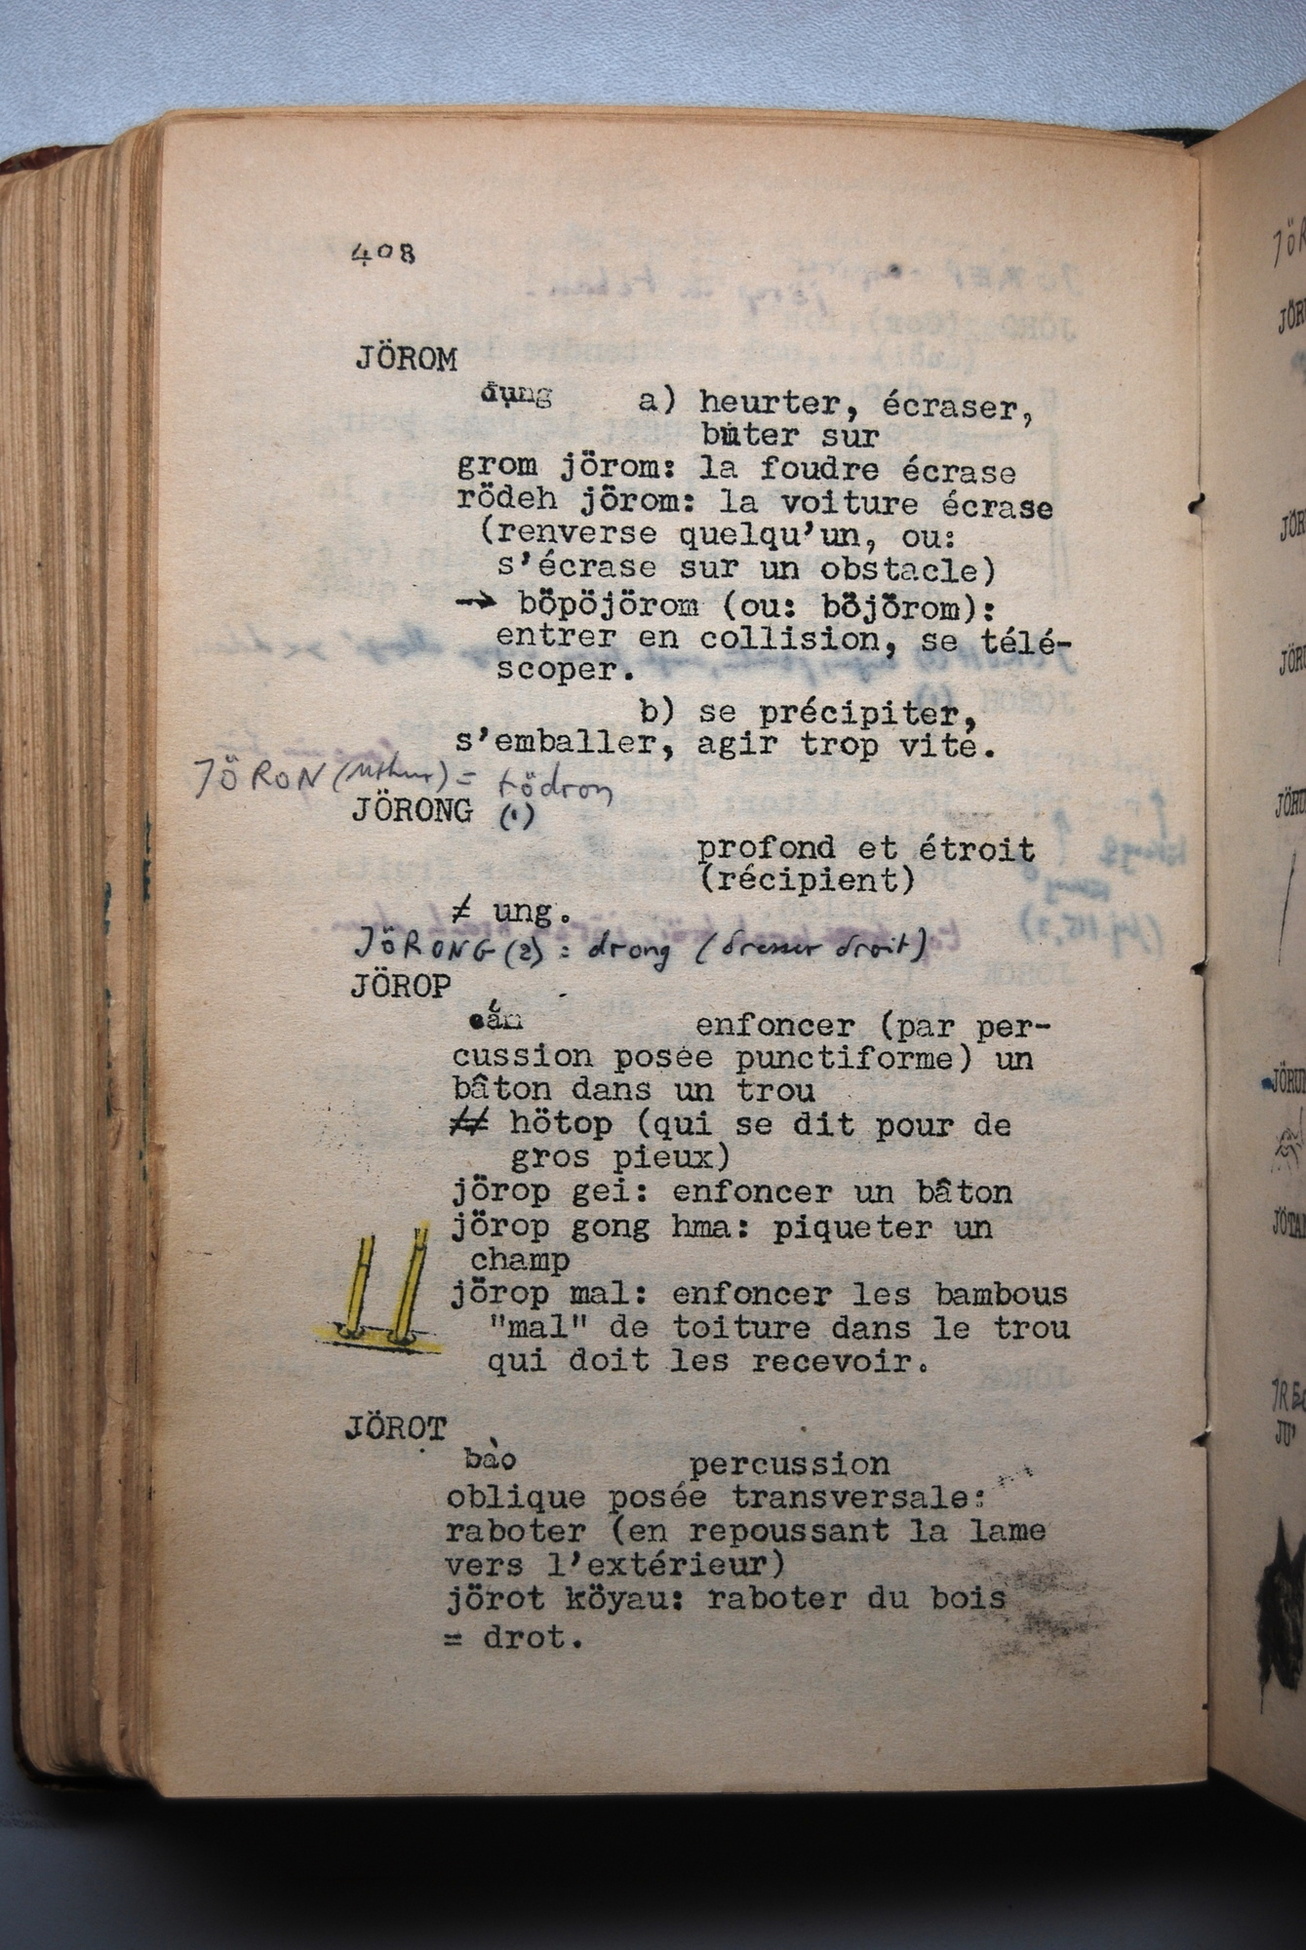 408
JÖROM
đụng a) heurter, écraser,
buter sur
grom jörom: la foudre écrase
rödeh jörom: la voiture écrase
(renverse quelqu'un, ou:
s'écrase sur un obstacle)
→ böpöjörom (ou: böjörom):
entrer en collision, se télé-
scoper.
b) se précipiter,
s'emballer, agir trop vite.
JÖRON = tödron
JÖRONG (1)
profond et étroit
(récipient)
≠ ung.
JÖRONG (2) = drong (dresser droit)
JÖROP
enfoncer (par per-
cussion posée punctiforme) un
bâton dans un trou
≠ hötop (qui se dit pour de
gros pieux)
jörop gei: enfoncer un bâton
jörop gong hma: piqueter un
champ
jörop mal: enfoncer les bambous
"mal" de toiture dans le trou
qui doit les recevoir.
JÖROT
bào percussion
oblique posée transversale:
raboter (en repoussant la lame
vers l'extérieur)
jörot köyau: raboter du bois
= drot.